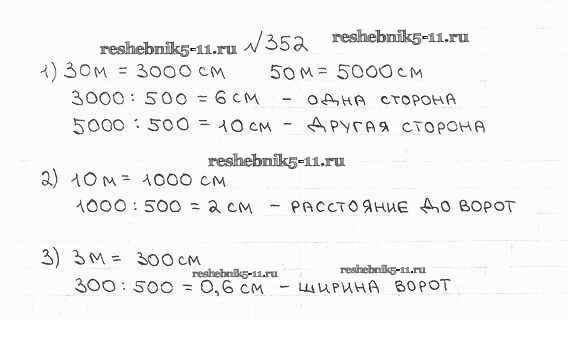 reshebnik5-11.ru √352 reshebnik5-11.ru
1) 30м = 3000 см 50м = 5000 см
3000 : 500 = 6 см - одна сторона
5000 : 500 = 10 см - другая сторона
reshebnik5-11.ru
2) 10м = 1000 см
1000 : 500 = 2 см - расстояние до ворот
3) 3м = 300 см
reshebnik5-11.ru reshebnik5-11.ru
300 : 500 = 0,6 см - ширина ворот